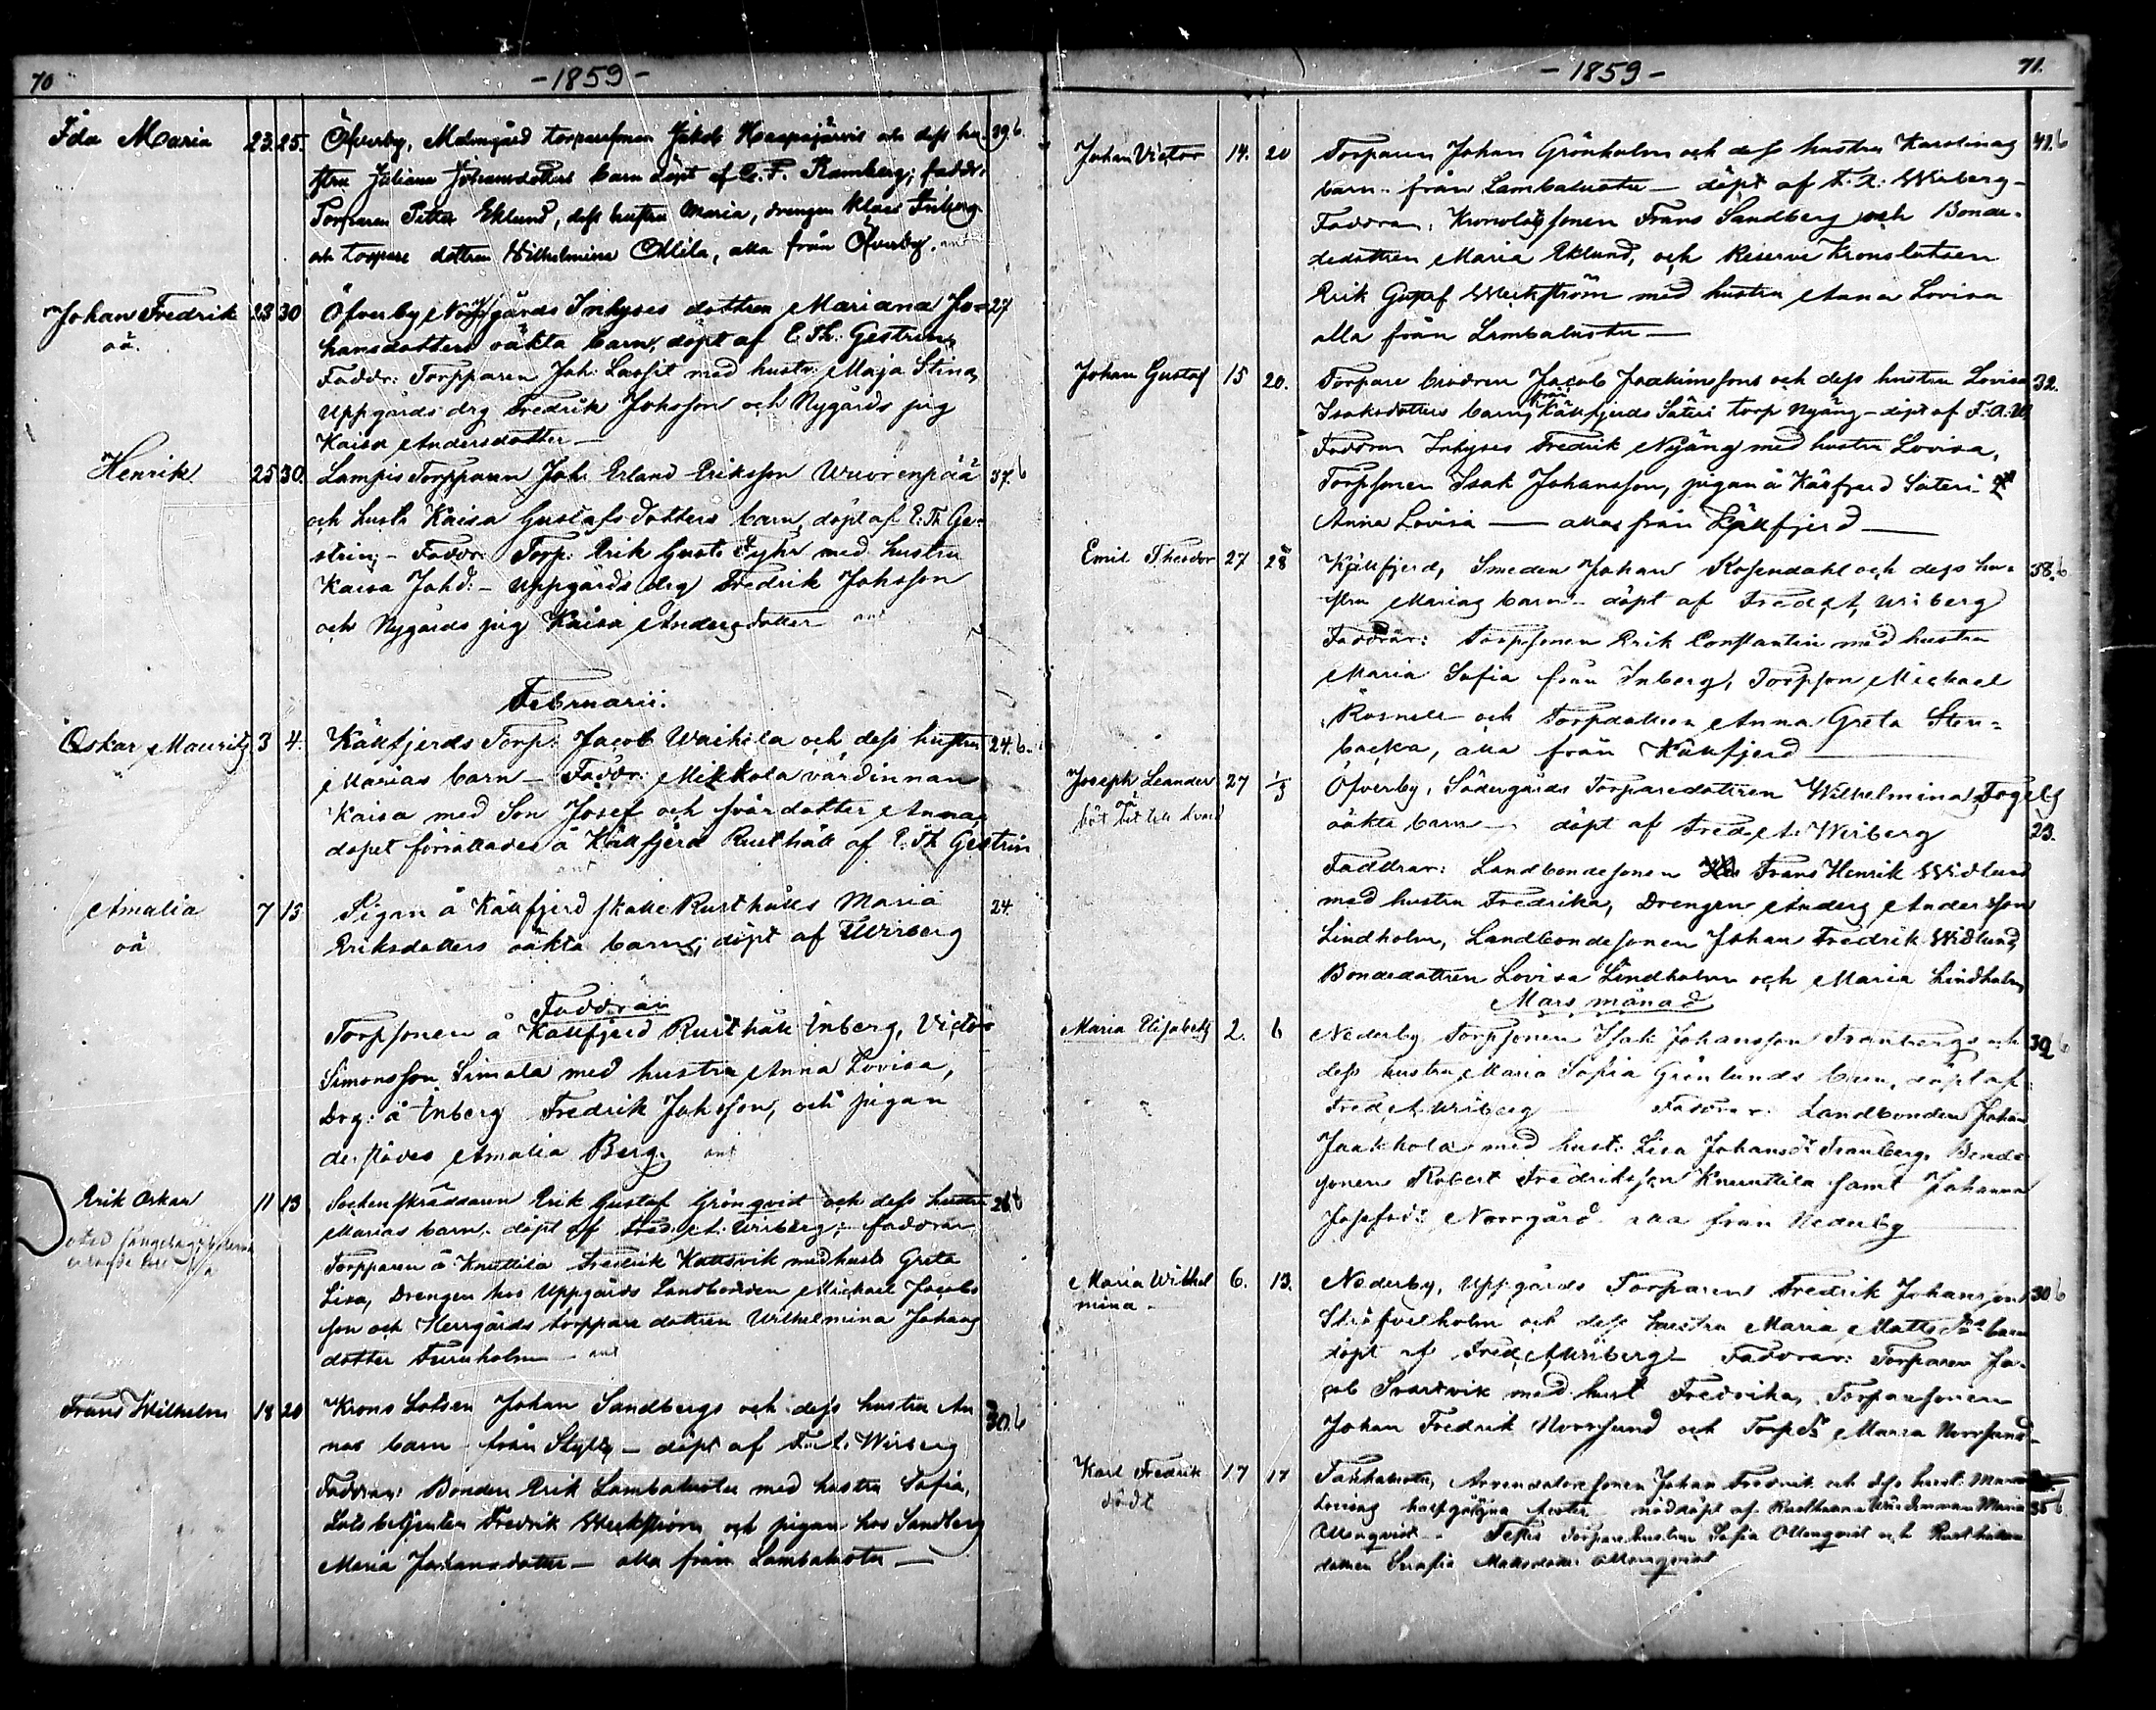 70
-1859-
Ida Maria 23. 25. Öfverby, Malmgård torparesonen Jakob Haapajärvis och dess hu- 39.b
stru Juliana Johansdotters barn döpt af C. F. Ramberg; faddr.
Torparen Petter Eklund, dess hustru Maria, drengen Klaes Friberg
och torpare dottren Wilhelmina Ollila, alla från Öfverby.
Johan Fredrik 23 30 Öfverby Nygårds Inhyses dottren Mariana Jo= 27
oä. hansdotters oäkta barn, döpt af E. Th. Gestrin,
Faddr: Torpparen Joh: Lassit med hustr. Maja Stina,
Uppgårds drg Fredrik Johsson och Nygårds pig
Kaisa Andersdotter —
Henrik 25 30. Lampis Torpparen Joh. Erland Eriksson Wuorenpää 37.b
och hustr. Kaisa Gustafsdotters barn, döpt af E. Th Ge-
strin; - Faddr. Torp. Erik Gust. Fyhr med hustru
Kaisa Johd: - Uppgårds drg Fredrik Johsson
och Nygårds pig Kaisa Andersdotter
Februarii.
Oskar Mauritz 3 4. Källfjerds Torp: Jacob Waihela och dess hustru 24.b.
Marias barn — Faddr: Mikkola värdinnan
Kaisa med Son Josef och svärdotter Anna,
dopet förrättades å Källfjerd Rusthåll af E. Th Gestrin
Amalia 7 13 Pigan å Källfjerd skatte Rusthålls Maria 24.
oä Eriksdotters oäkta barn, döpt af Wirberg
Faddrar
Torpsonen å Källfjerd Rusthåll Inberg, Victor
Simonsson Simola med hustru Anna Lovisa,
Drg: å Inberg Fredrik Johsson, och pigan
derstädes Amalia Berg.
Erik Oskar 11 13 Sockenskräddaren Erik Gustaf Grönqvist och dess hustru 26b
Marias barn. döpt af Fred. A. Wirberg; faddrar
Torpparen å Knuttila Fredrik Kattsvik med hustr Greta
Lisa, Drengen hos Uppgårds Landbonden Mickael Jacobs
son och Herrgårds torppare dottren Wilhelmina Johans
dotter Furuholm
Frans Wilhelm 18 20 Krons Lotsen Johan Sandbergs och dess hustru An 30.b
nas barn - från — döpt af F. A. Wirberg
Faddrar: Bonden Erik Lambaluoto med hustru Sofia,
Lots betjenten Fredrik Werkström och pigan hos Sandberg
Maria Johansdotter — alla från Lambaluoto —
-1859-
71.
Johan Victor 14. 20 Torparen Johan Grönholm och dess hustru Karolinas 41.b
barn - från Lambaluoto — döpt af F. A. Wirberg -
Faddrar, Kronolotssonen Frans Sandberg och Bonde-
dedottren Maria Eklund, och Reserve Kronslotsen
Erik Gustaf Werkström med hustru Anna Lovisa
alla från Lambaluoto —
Johan Gustaf 15 20. Torpare brodren Jacob Joakimssons och dess hustru Lovisa 32.
Isaksdotters barn, från Källfjerds Säteri torp Nyäng - döpt af F. A. W
Faddrar Inhyses Fredrik Nyäng med hustru Lovisa,
Torpsonen Isak Johansson, pigan å Källfjerd Säteri
Anna Lovisa — alla från Källfjerd —
Emil Theodor 27 28 Källfjerd, Smeden Johan Rosendahl och dess hu- 38.b
stru Marias barn - döpt af Fred. A. Wirberg
Faddrar: Torpsonen Erik Constantin med hustru
Maria Sofia från Inberg, Torpson Mickael
Rosnell och Torpdottren Anna Greta Sten-
backa, alla från Källfjerd —
Joseph Leander 27 1/3 Öfverby, Södergårds Torparedottren Wilhelmina Fogels
oä oäkta barn — döpt af Fred. A. Wirberg 23.
Faddrar: Landbondesonen Frans Henrik Widlund
med hustru Fredrika, Drengen Anders Andersson
Lindholm, Landbondesonen Johan Fredrik Widlund,
Bondedottren Lovisa Lindholm och Maria Lindholm
Mars månad
Maria Elisabeth 2. 6 Nederby Torpsonen Isak Johansson Tranbergs och 39 b
dess hustru Maria Sofia Grönlunds barn, döpt af
Fred. A. Wirberg Faddrar: Landbonden Johan
Jaakkola med hust. Lisa Johansdr Tranberg, Bonde
sonen Robert Fredriksson Knuuttila samt Johanna
Josefsdr Norrgård alla från Nederby
Maria Wilhel 6. 13. Nederby, Uppgårds Torparens Fredrik Johanssons 30 b
mina - Ströfvelholm och dess hustru Maria Matts dr barn
döpt af Fred. A. Wirberg - Faddrar: Torparen Ja-
cob Svartvik med hust Fredrika, Torparesonen
Johan Fredrik Norrsund och Torp dr Maria Norrsund -
Karl Fredrik 17 17 Takkaluoto, Arrendatorsonen Johan Fredrik och dess hust. Maria
dödt Lovisas halfgångna foster nöddöpt af Rusthålls Wärdinnan Maria 35 b
Ollonqvist - Testes Torpare hustrun Sofia Ollonqvist och Rusthållare
dottren Serafia Mattsdotter Ollonqvist